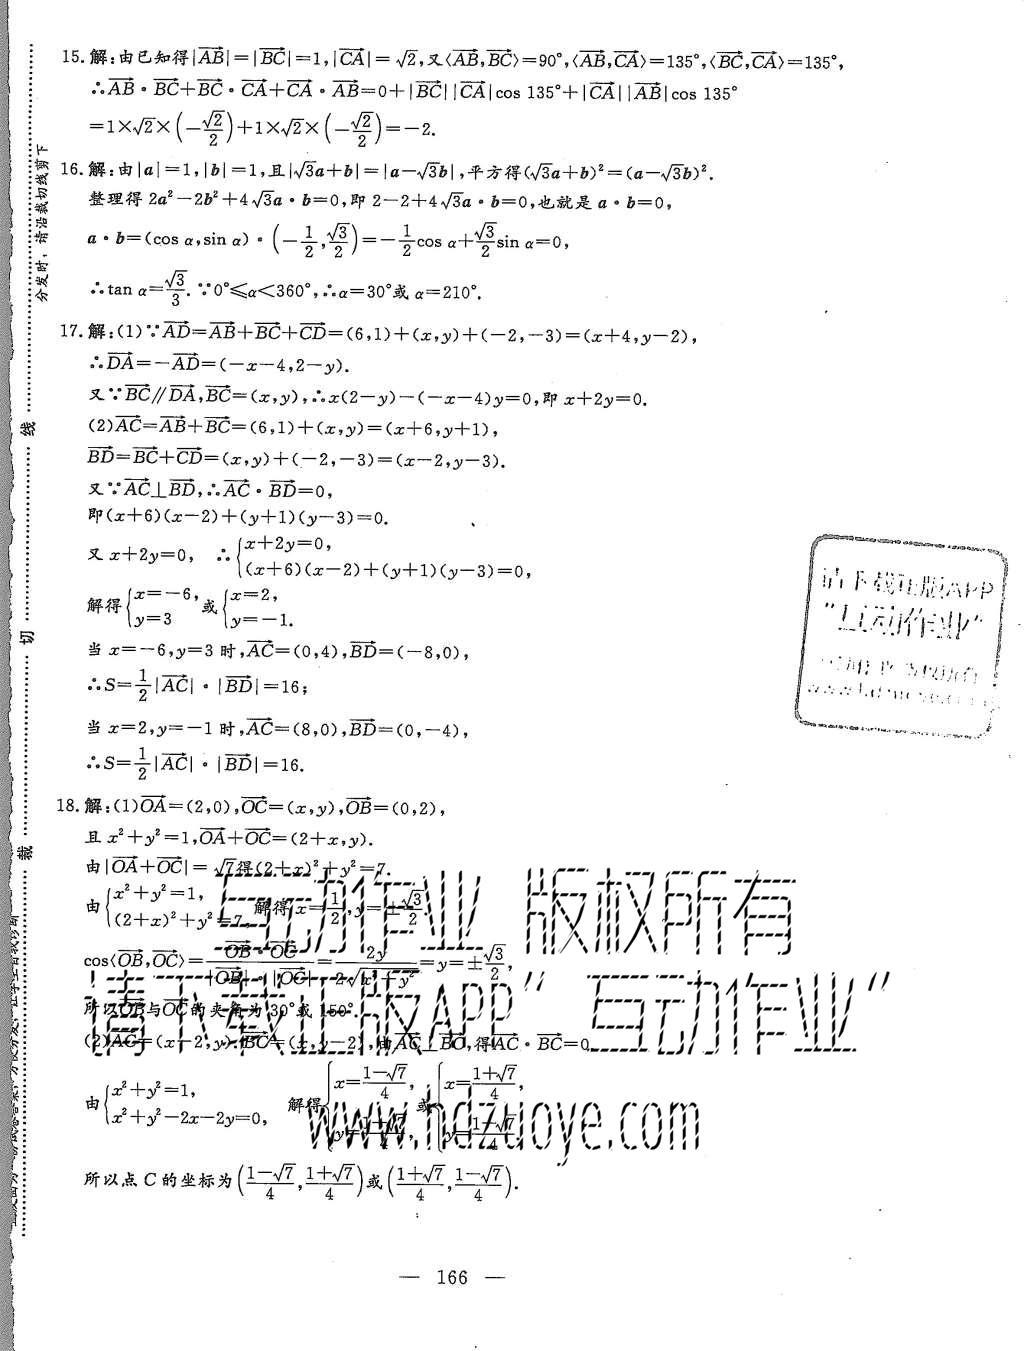 15.解:由已知得|AB→|=|BC→|=1,|CA→|=√2,又⟨AB→,BC→⟩=90°,⟨AB→,CA→⟩=135°,⟨BC→,CA→⟩=135°,
∴AB→·BC→+BC→·CA→+CA→·AB→=0+|BC→||CA→|cos 135°+|CA→||AB→|cos 135°
=1×√2×(-√2/2)+1×√2×(-√2/2)=-2.
16.解:由|a|=1,|b|=1,且|√3a+b|=|a-√3b|,平方得(√3a+b)²=(a-√3b)².
整理得 2a²-2b²+4√3a·b=0,即 2-2+4√3a·b=0,也就是 a·b=0,
a·b=(cos α,sin α)·(-1/2,√3/2)=-1/2cos α+√3/2sin α=0,
∴tan α=√3/3.∵0°≤α<360°,∴α=30°或 α=210°.
17.解:(1)∵AD→=AB→+BC→+CD→=(6,1)+(x,y)+(-2,-3)=(x+4,y-2),
∴DA→=-AD→=(-x-4,2-y).
又∵BC→∥DA→,BC→=(x,y),∴x(2-y)-(-x-4)y=0,即 x+2y=0.
(2)AC→=AB→+BC→=(6,1)+(x,y)=(x+6,y+1),
BD→=BC→+CD→=(x,y)+(-2,-3)=(x-2,y-3).
又∵AC→⊥BD→,∴AC→·BD→=0,
即(x+6)(x-2)+(y+1)(y-3)=0.
又 x+2y=0, ∴{x+2y=0, (x+6)(x-2)+(y+1)(y-3)=0,
解得{x=-6, y=3 或{x=2, y=-1.
当 x=-6,y=3 时,AC→=(0,4),BD→=(-8,0),
∴S=1/2|AC→|·|BD→|=16;
当 x=2,y=-1 时,AC→=(8,0),BD→=(0,-4),
∴S=1/2|AC→|·|BD→|=16.
18.解:(1)OA→=(2,0),OC→=(x,y),OB→=(0,2),
且 x²+y²=1,OA→+OC→=(2+x,y).
由|OA→+OC→|=√7得(2+x)²+y²=7.
由{x²+y²=1, (2+x)²+y²=7, 解得 x=1/2,y=±√3/2
cos⟨OB→,OC→⟩=OB→·OC→/|OB→|·|OC→|=2y/2√x²+y²=y=±√3/2,
所以OB→与OC→的夹角为 30°或 150°.
(2)AC→=(x-2,y),BC→=(x,y-2),由AC→⊥BC→,得AC→·BC→=0
由{x²+y²=1, x²+y²-2x-2y=0, 解得{x=1-√7/4, y=1+√7/4, 或{x=1+√7/4, y=1-√7/4
所以点 C 的坐标为(1-√7/4,1+√7/4)或(1+√7/4,1-√7/4).
— 166 —
分发时,请沿裁切线剪下
裁 切 线
请下载正版APP
"互动作业"
互动作业 版权所有
请下载正版APP"互动作业"
www.hdzuoye.com